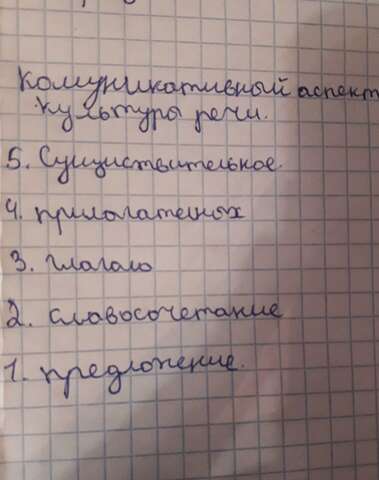 комуникативный аспект
культуры речи.
5. Сущиствительное.
4. прилогательных
3. глаголо
2. словосочетание
1. предложение.